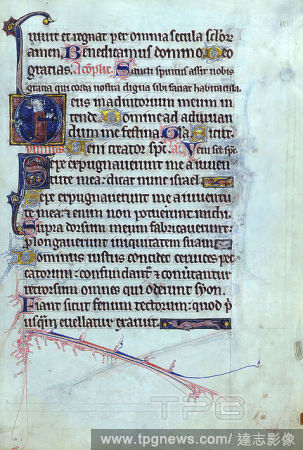 uiuit et regnat per omnia secula sclor
amen. Benedicamus domino. Deo
gratias. Sancti spiritus assit nobis
gracia qui corda nostra digna sibi faciat habitacula.
Deus in adiutorium meum in
tende. Domine ad adiuuan
dum me festina. Gla. Sicut.
Ueni creator sps. Ueni sce sps.
Sepe expugnauerunt me a iuuen
tute mea: dicat nunc israel.
Sepe expugnauerunt me a iuuentu
te mea: etenim non potuerunt michi.
Supra dorsum meum fabricauerunt:
prolongauerunt iniquitatem suam.
Dominus iustus concidet ceruices pec
catorum: confundantur et conuertantur
retrorsum omnes qui oderunt syon.
Fiant sicut fenum tectorum: quod p
usqm euellatur exaruit.
TPG
www.tpgnews.com / 達志影像